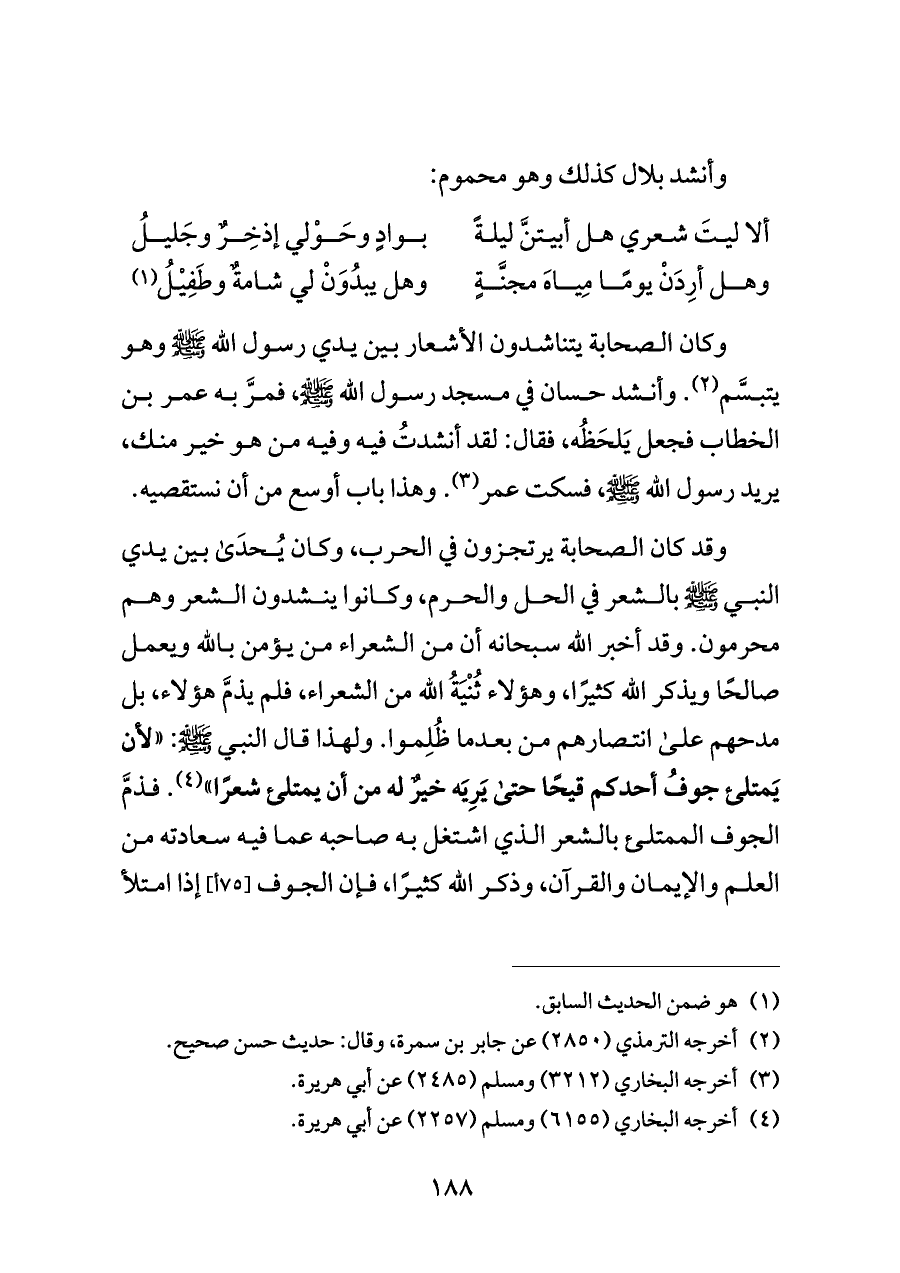 وأنشد بلال كذلك وهو محموم:
ألا ليتَ شعري هل أبيتنَّ ليلةً بوادٍ وحَوْلي إذخِرٌ وجَليلُ
وهل أرِدَنْ يومًا مِياهَ مجنَّةٍ وهل يبدُوَنْ لي شامةٌ وطَفِيْلُ(١)
وكان الصحابة يتناشدون الأشعار بين يدي رسول الله ﷺ وهو
يتبسَّم(٢). وأنشد حسان في مسجد رسول الله ﷺ، فمرَّ به عمر بن
الخطاب فجعل يَلحَظُه، فقال: لقد أنشدتُ فيه وفيه من هو خير منك،
يريد رسول الله ﷺ، فسكت عمر(٣). وهذا باب أوسع من أن نستقصيه.
وقد كان الصحابة يرتجزون في الحرب، وكان يُحدَىٰ بين يدي
النبي ﷺ بالشعر في الحل والحرم، وكانوا ينشدون الشعر وهم
محرمون. وقد أخبر الله سبحانه أن من الشعراء من يؤمن بالله ويعمل
صالحًا ويذكر الله كثيرًا، وهؤلاء ثُنْيَةُ الله من الشعراء، فلم يذمَّ هؤلاء، بل
مدحهم علىٰ انتصارهم من بعدما ظُلِموا. ولهذا قال النبي ﷺ: «لأن
يَمتلئ جوفُ أحدكم قيحًا حتىٰ يَرِيَه خيرٌ له من أن يمتلئ شعرًا»(٤). فذمَّ
الجوف الممتلئ بالشعر الذي اشتغل به صاحبه عما فيه سعادته من
العلم والإيمان والقرآن، وذكر الله كثيرًا، فإن الجوف [٧٥أ] إذا امتلأ
(١) هو ضمن الحديث السابق.
(٢) أخرجه الترمذي (٢٨٥٠) عن جابر بن سمرة، وقال: حديث حسن صحيح.
(٣) أخرجه البخاري (٣٢١٢) ومسلم (٢٤٨٥) عن أبي هريرة.
(٤) أخرجه البخاري (٦١٥٥) ومسلم (٢٢٥٧) عن أبي هريرة.
١٨٨